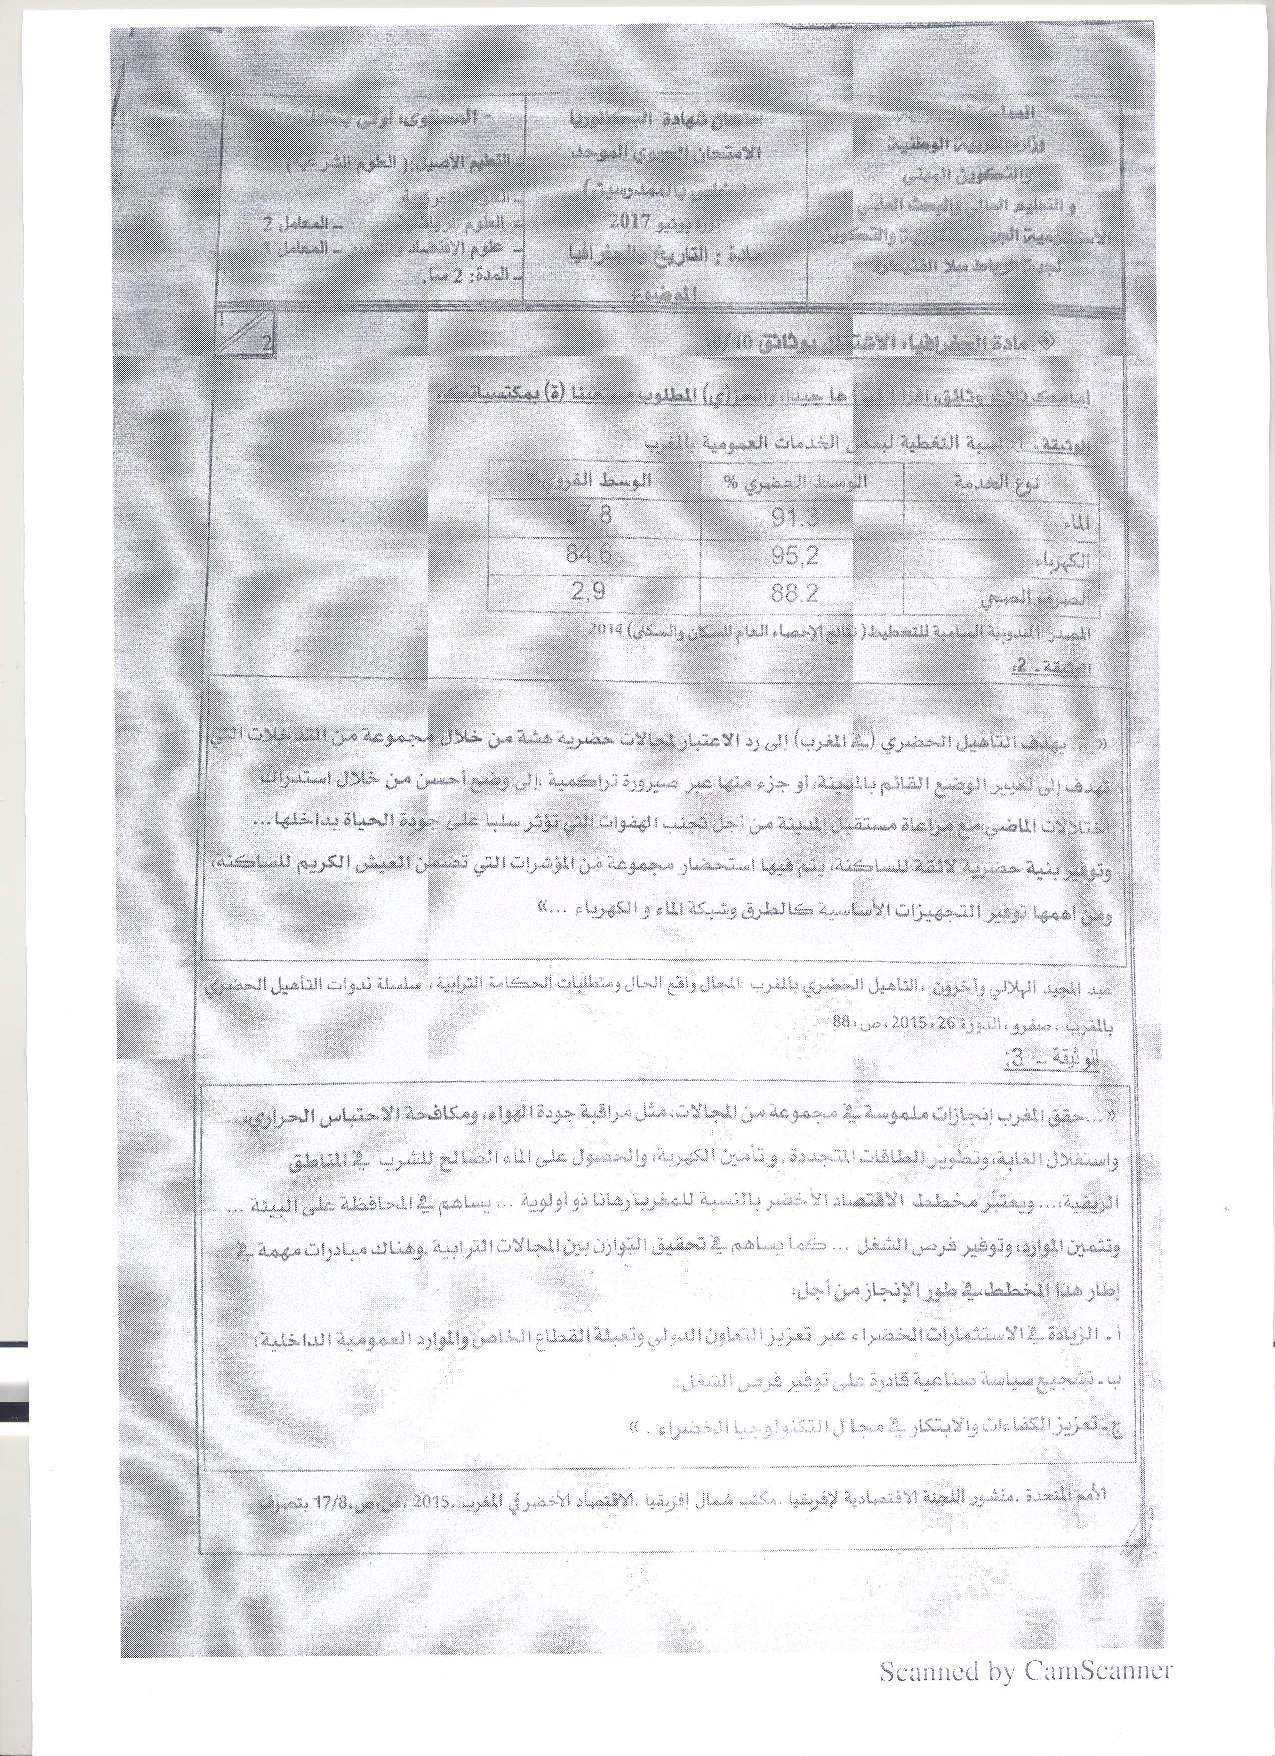 وزارة التربية الوطنية
والتكوين المهني
و التعليم العالي والبحث العلمي
امتحان شهادة البكالوريا
الامتحان الجهوي الموحد
يونيو 2017
مادة : التاريخ والجغرافيا
الموضوع
- المستوى: أولى
التعليم الأصيل: ( العلوم الشرعية
- المعامل 2
- علوم الاقتصاد - المعامل 3
- المدة: 2 سا.
2
مادة الجغرافيا، الاشتغال بوثائق 10
الوثيقة - نسبة التغطية لبعض الخدمات العمومية بالمغرب
نوع الخدمة الوسط الحضري % الوسط القروي
الماء 91.
الكهرباء 95,2 84,6
الصرف الصحي 88.2 2,9
المصدر المندوبية السامية للتخطيط( نتائج الإحصاء العام للسكان والسكنى) 2014
الوثيقة - 2:
« ... يهدف التأهيل الحضري (في المغرب) إلى رد الاعتبار لمجالات حضرية هشة من خلال مجموعة من التدخلات التي
تهدف إلى تغيير الوضع القائم بالمدينة، أو جزء منها عبر صيرورة تراكمية ،إلى وضع أحسن من خلال استدراك
اختلالات الماضي،مع مراعاة مستقبل المدينة من أجل تجنب الهفوات التي تؤثر سلبا على جودة الحياة بداخلها...
وتوفير بنية حضرية لائقة للساكنة، يتم فيها استحضار مجموعة من المؤشرات التي تضمن العيش الكريم للساكنة،
ومن أهمها توفير التجهيزات الأساسية كالطرق وشبكة الماء و الكهرباء ...»
عبد المجيد الهلالي وآخرون ، التأهيل الحضري بالمغرب المجال واقع الحال ومتطلبات الحكامة الترابية ، سلسلة ندوات التأهيل الحضري
بالمغرب ، صفرو ، الدورة 26 ، 2015 ، ص، 88
الوثيقة - 3:
«...حقق المغرب إنجازات ملموسة في مجموعة من المجالات، مثل مراقبة جودة الهواء، ومكافحة الاحتباس الحراري،
واستغلال الغابة، وتطوير الطاقات المتجددة ، وتأمين الكهربة، والحصول على الماء الصالح للشرب في المناطق
الريفية،... ويعتبر مخطط الاقتصاد الأخضر بالنسبة للمغرب رهانا ذو أولوية ... يساهم في المحافظة على البيئة ...
وتثمين الموارد، وتوفير فرص الشغل ... كما يساهم في تحقيق التوازن بين المجالات الترابية .وهناك مبادرات مهمة في
إطار هذا المخطط،في طور الإنجاز من أجل:
أ - الزيادة في الاستثمارات الخضراء عبر تعزيز التعاون الدولي وتعبئة القطاع الخاص والموارد العمومية الداخلية؛
ب - تشجيع سياسة صناعية قادرة على توفير فرص الشغل؛
ج - تعزيز الكفاءات والابتكار في مجال التكنولوجيا الخضراء . »
الأمم المتحدة ، منشور اللجنة الاقتصادية لإفريقيا ، مكتب شمال إفريقيا ، الاقتصاد الأخضر في المغرب ، 2015 ، ص ص، 17/8 بتصرف
Scanned by CamScanner